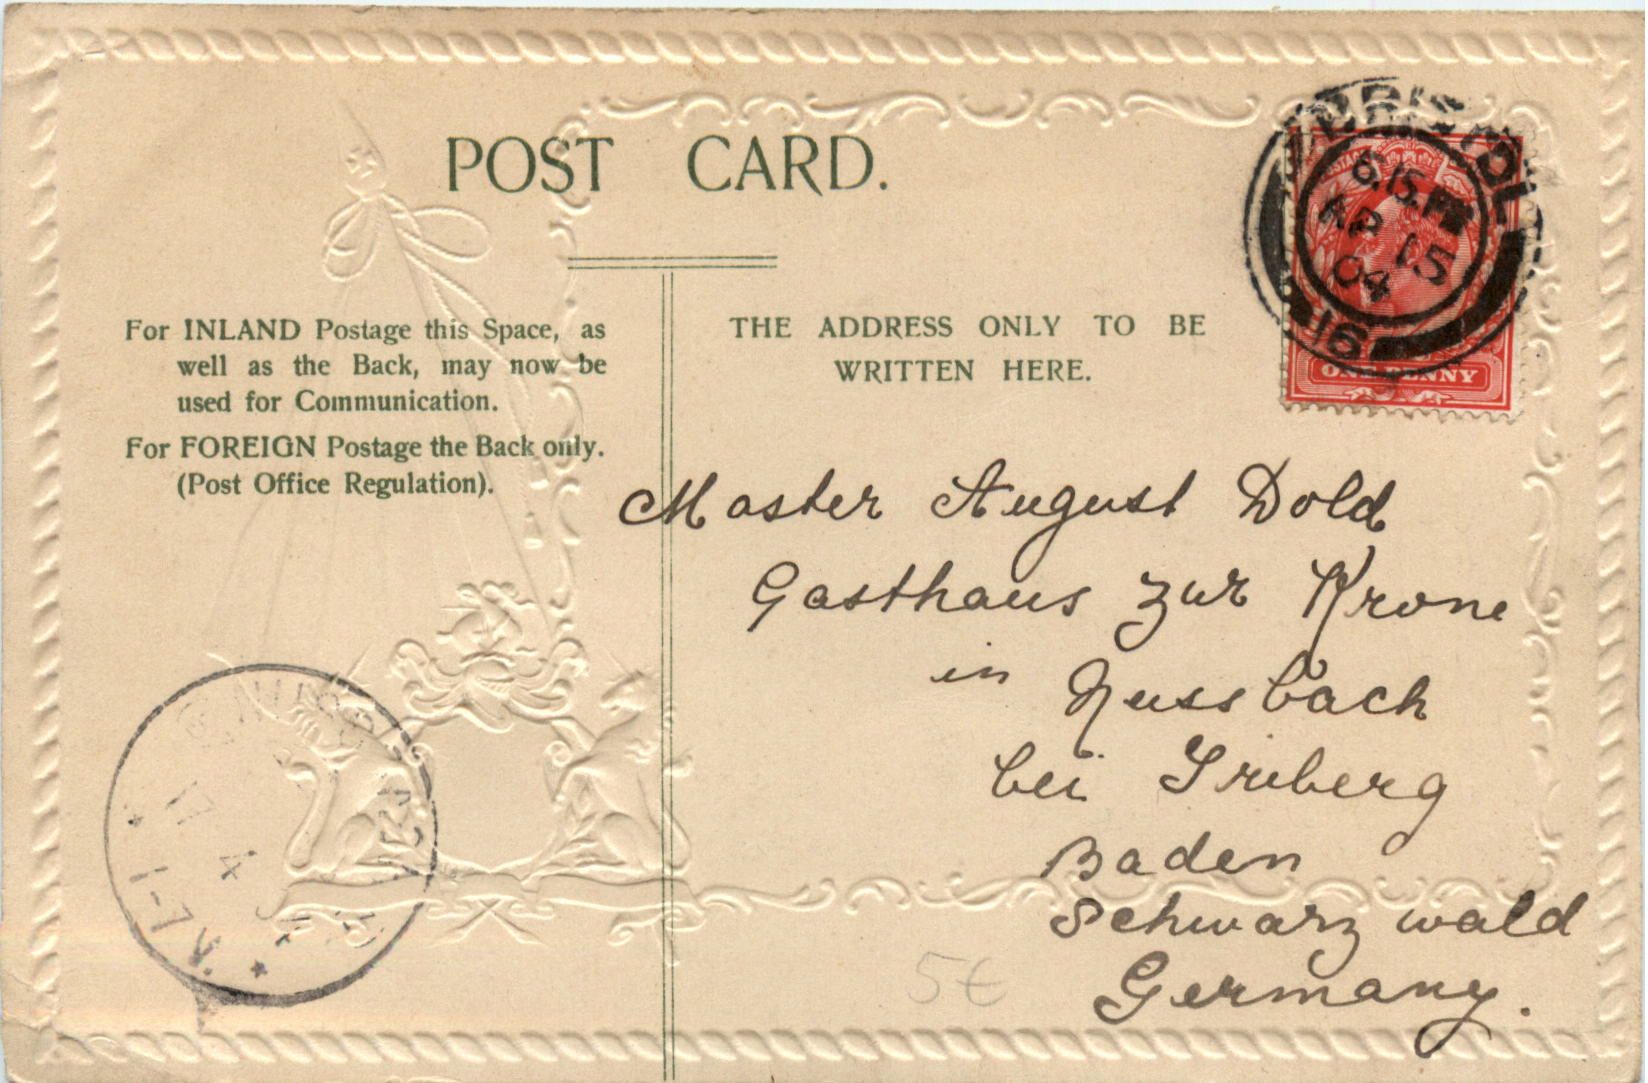 POST CARD.
For INLAND Postage this Space, as
well as the Back, may now be
used for Communication.
For FOREIGN Postage the Back only.
(Post Office Regulation).
THE ADDRESS ONLY TO BE
WRITTEN HERE.
BRISTOL
6.15.PM
AP 15
04
16
ONE PENNY
Master August Dold
Gasthaus zur Krone
in Nussbach
bei Triberg
Baden
Schwarzwald
Germany.
5€